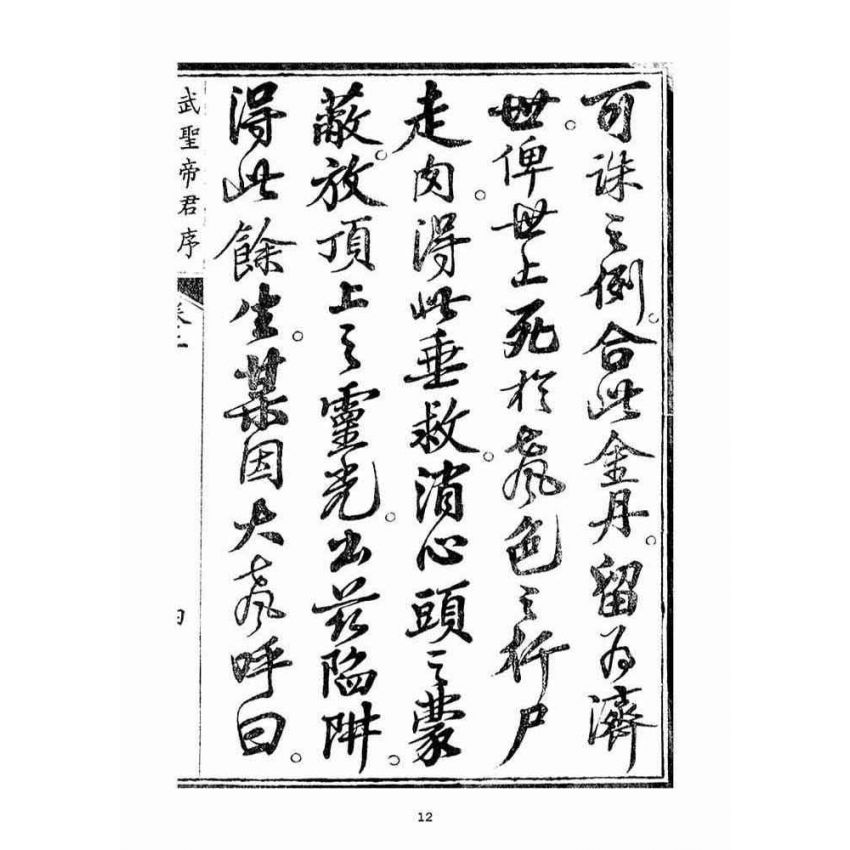 可誅之例。合此金丹。留為濟
世。俾世上死於聲色之行尸
走肉。得此垂救。消心頭之蒙
蔽。放頂上之靈光。出茲陷阱。
得此餘生。某因大聲呼曰。
武聖帝君序
12